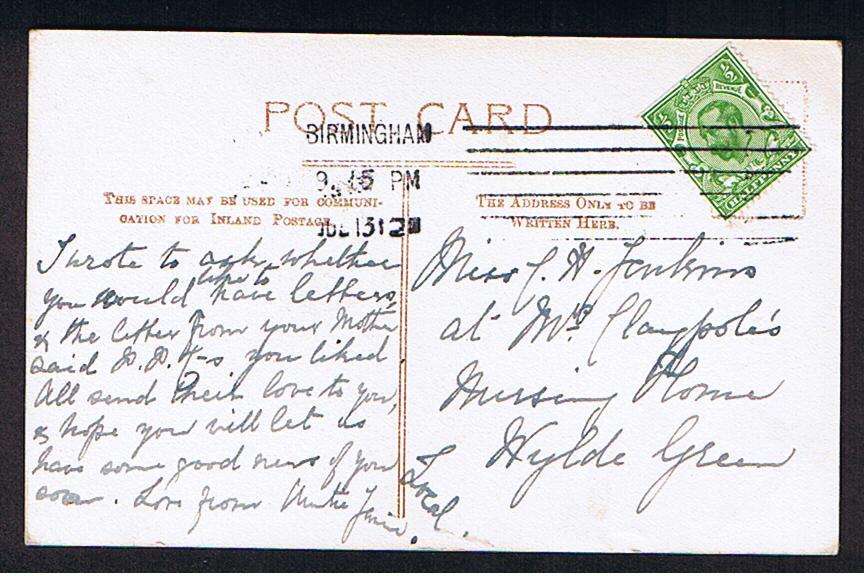 POST CARD
BIRMINGHAM
9.15 PM
JUL 13 12
THIS SPACE MAY BE USED FOR COMMUNI-
CATION FOR INLAND POSTAGE
THE ADDRESS ONLY TO BE
WRITTEN HERE.
POSTAGE REVENUE
HALFPENNY
I wrote to ask whether
you would like to have letters,
& the letter from your Mother
said P.P.K-s you liked.
All send their love to you,
& hope you will let us
have some good news of you
soon. Love from Auntie
Miss J. H. Jenkins
at Mrs Claypole's
Nursing Home
Wylde Green
Local.